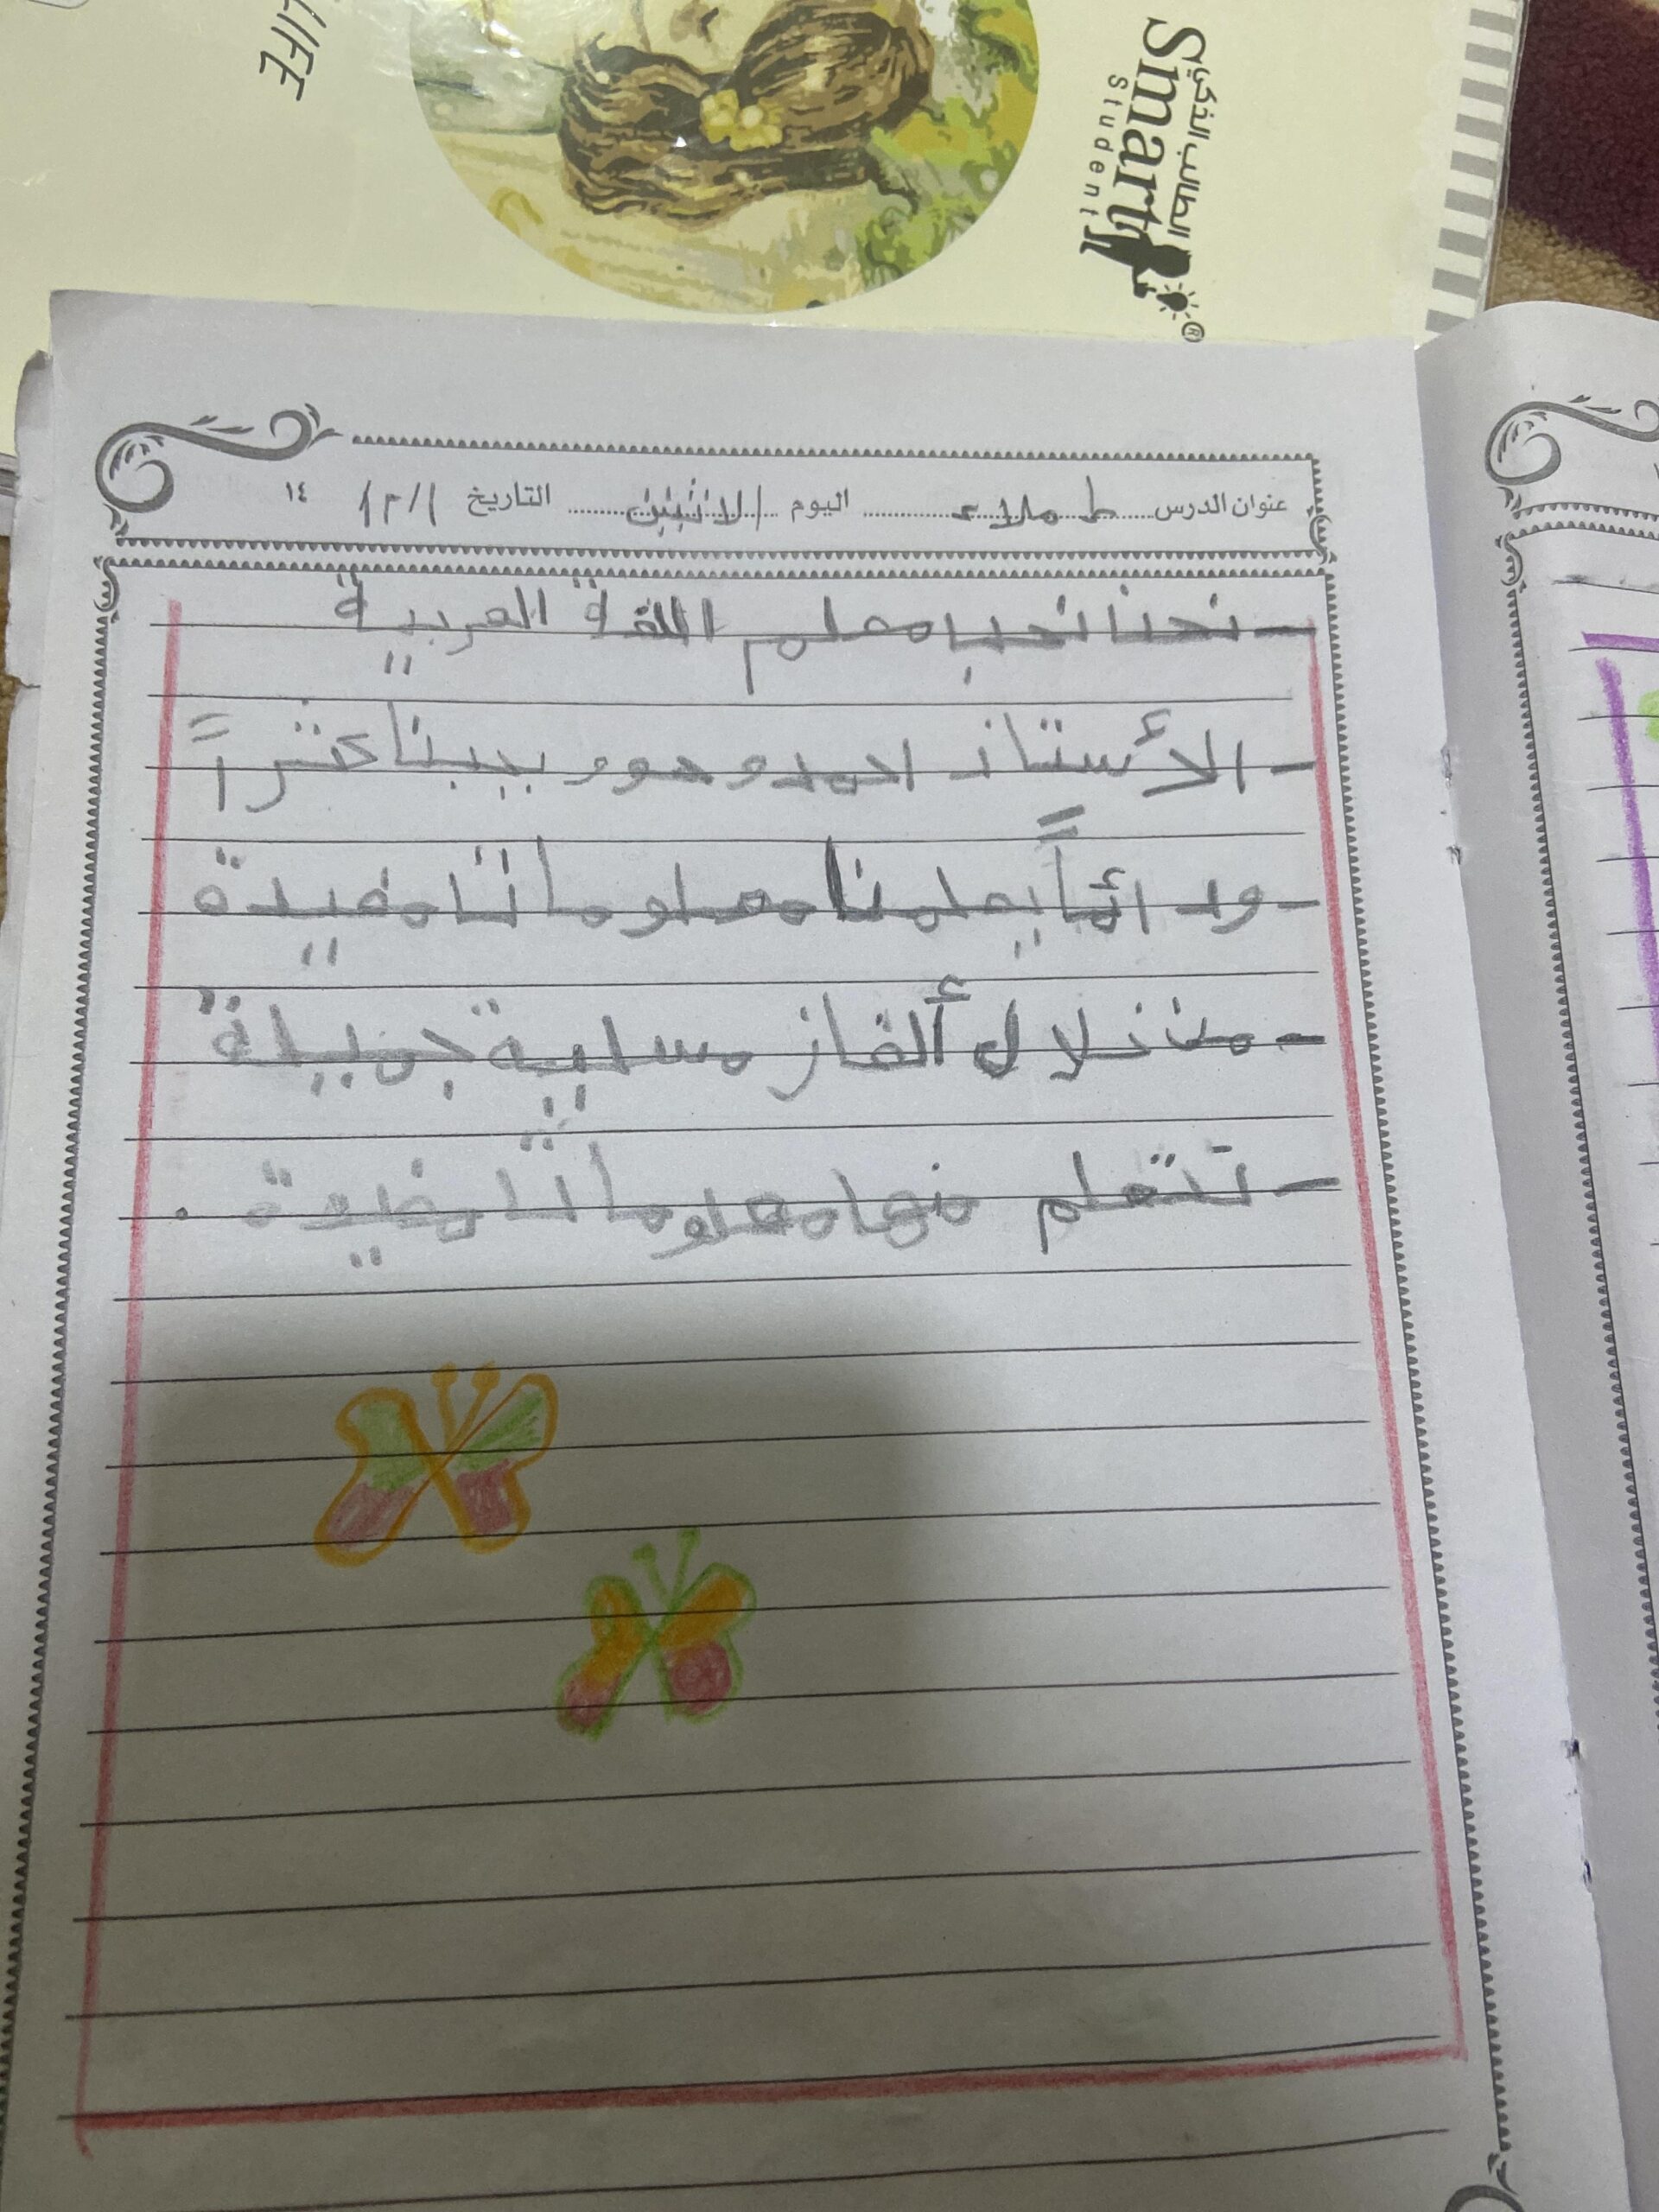 LIFE
الطالب الذكي
Smart
Student
عنوان الدرس املاء اليوم الاثنين التاريخ ١٢/١ ١٤
- نحنا نحب معلم اللغة العربية
- الأستاذ احمد وهوو يحبنا كثيراً
- ودائماً يعلمنا معلوماتا مفيدة
- من خلال ألغاز مسلية جميلة
- نتعلم منها معلوماتا مفيدة .